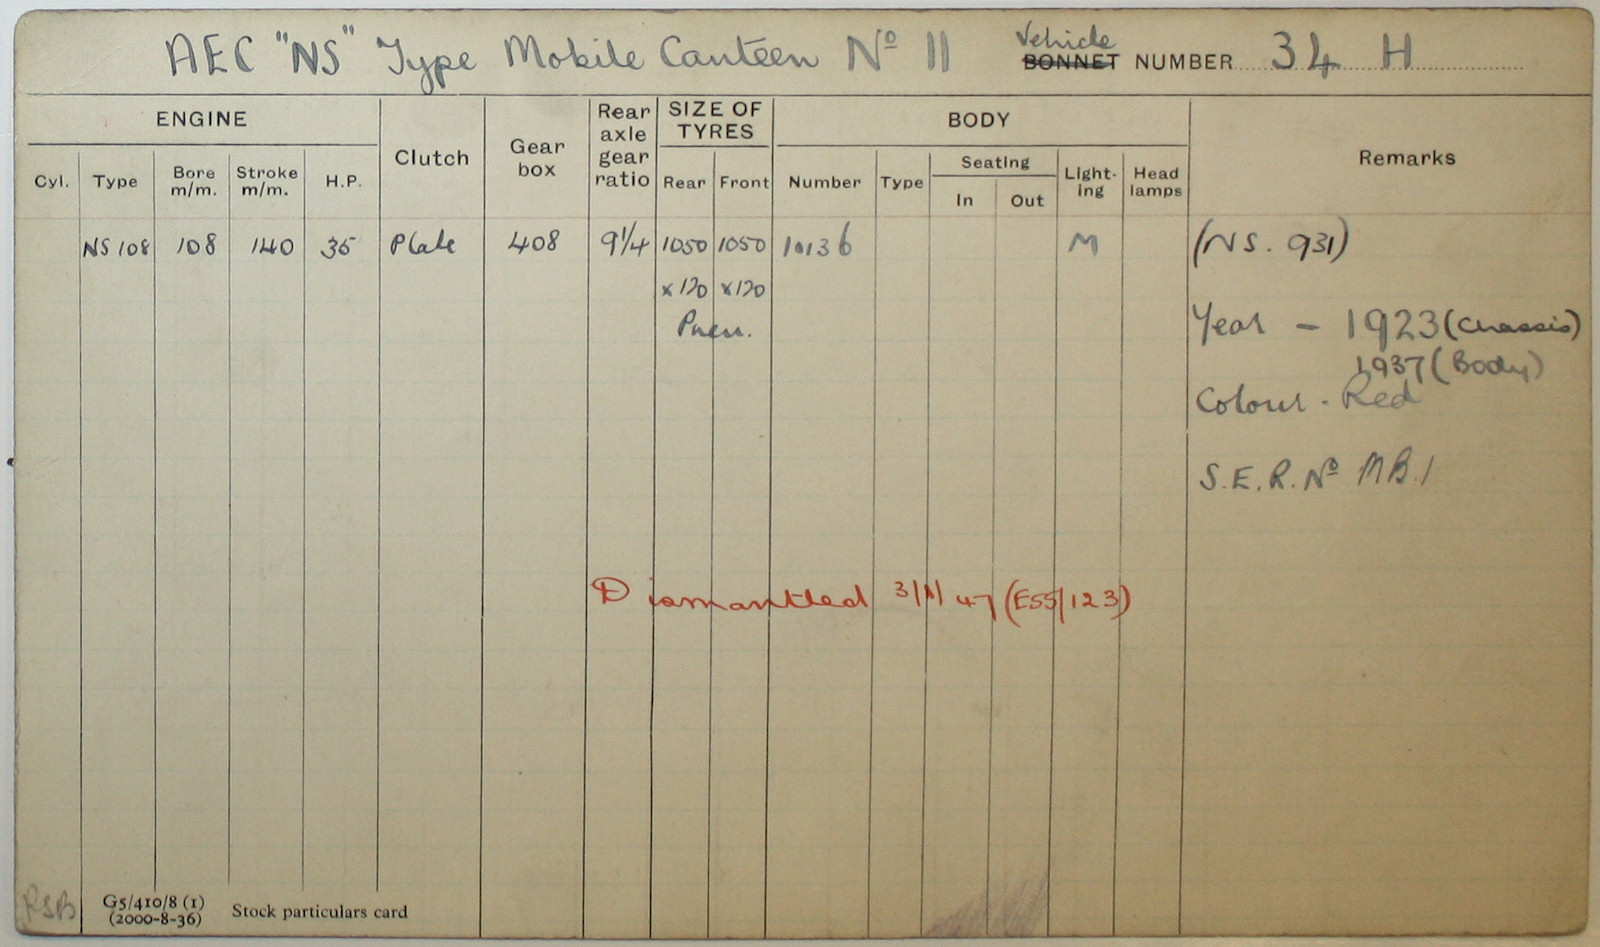 AEC "NS" Type Mobile Canteen Nº 11 Vehicle BONNET NUMBER 34 H
ENGINE
Cyl. Type Bore m/m. Stroke m/m. H.P.
Clutch
Gear box
Rear axle gear ratio
SIZE OF TYRES
Rear Front
BODY
Number Type Seating In Out Light-ing Head lamps
Remarks
NS 108 108 140 35 Plate 408 9¼ 1050 1050 10136 M (NS. 931)
x 120 x 120
Pneu.
Year - 1923 (Chassis)
1937 (Body)
Colour - Red
S.E.R. Nº MB.1
Dismantled 47 (E55/123)
RSB
G5/410/8 (1)
(2000-8-36)
Stock particulars card